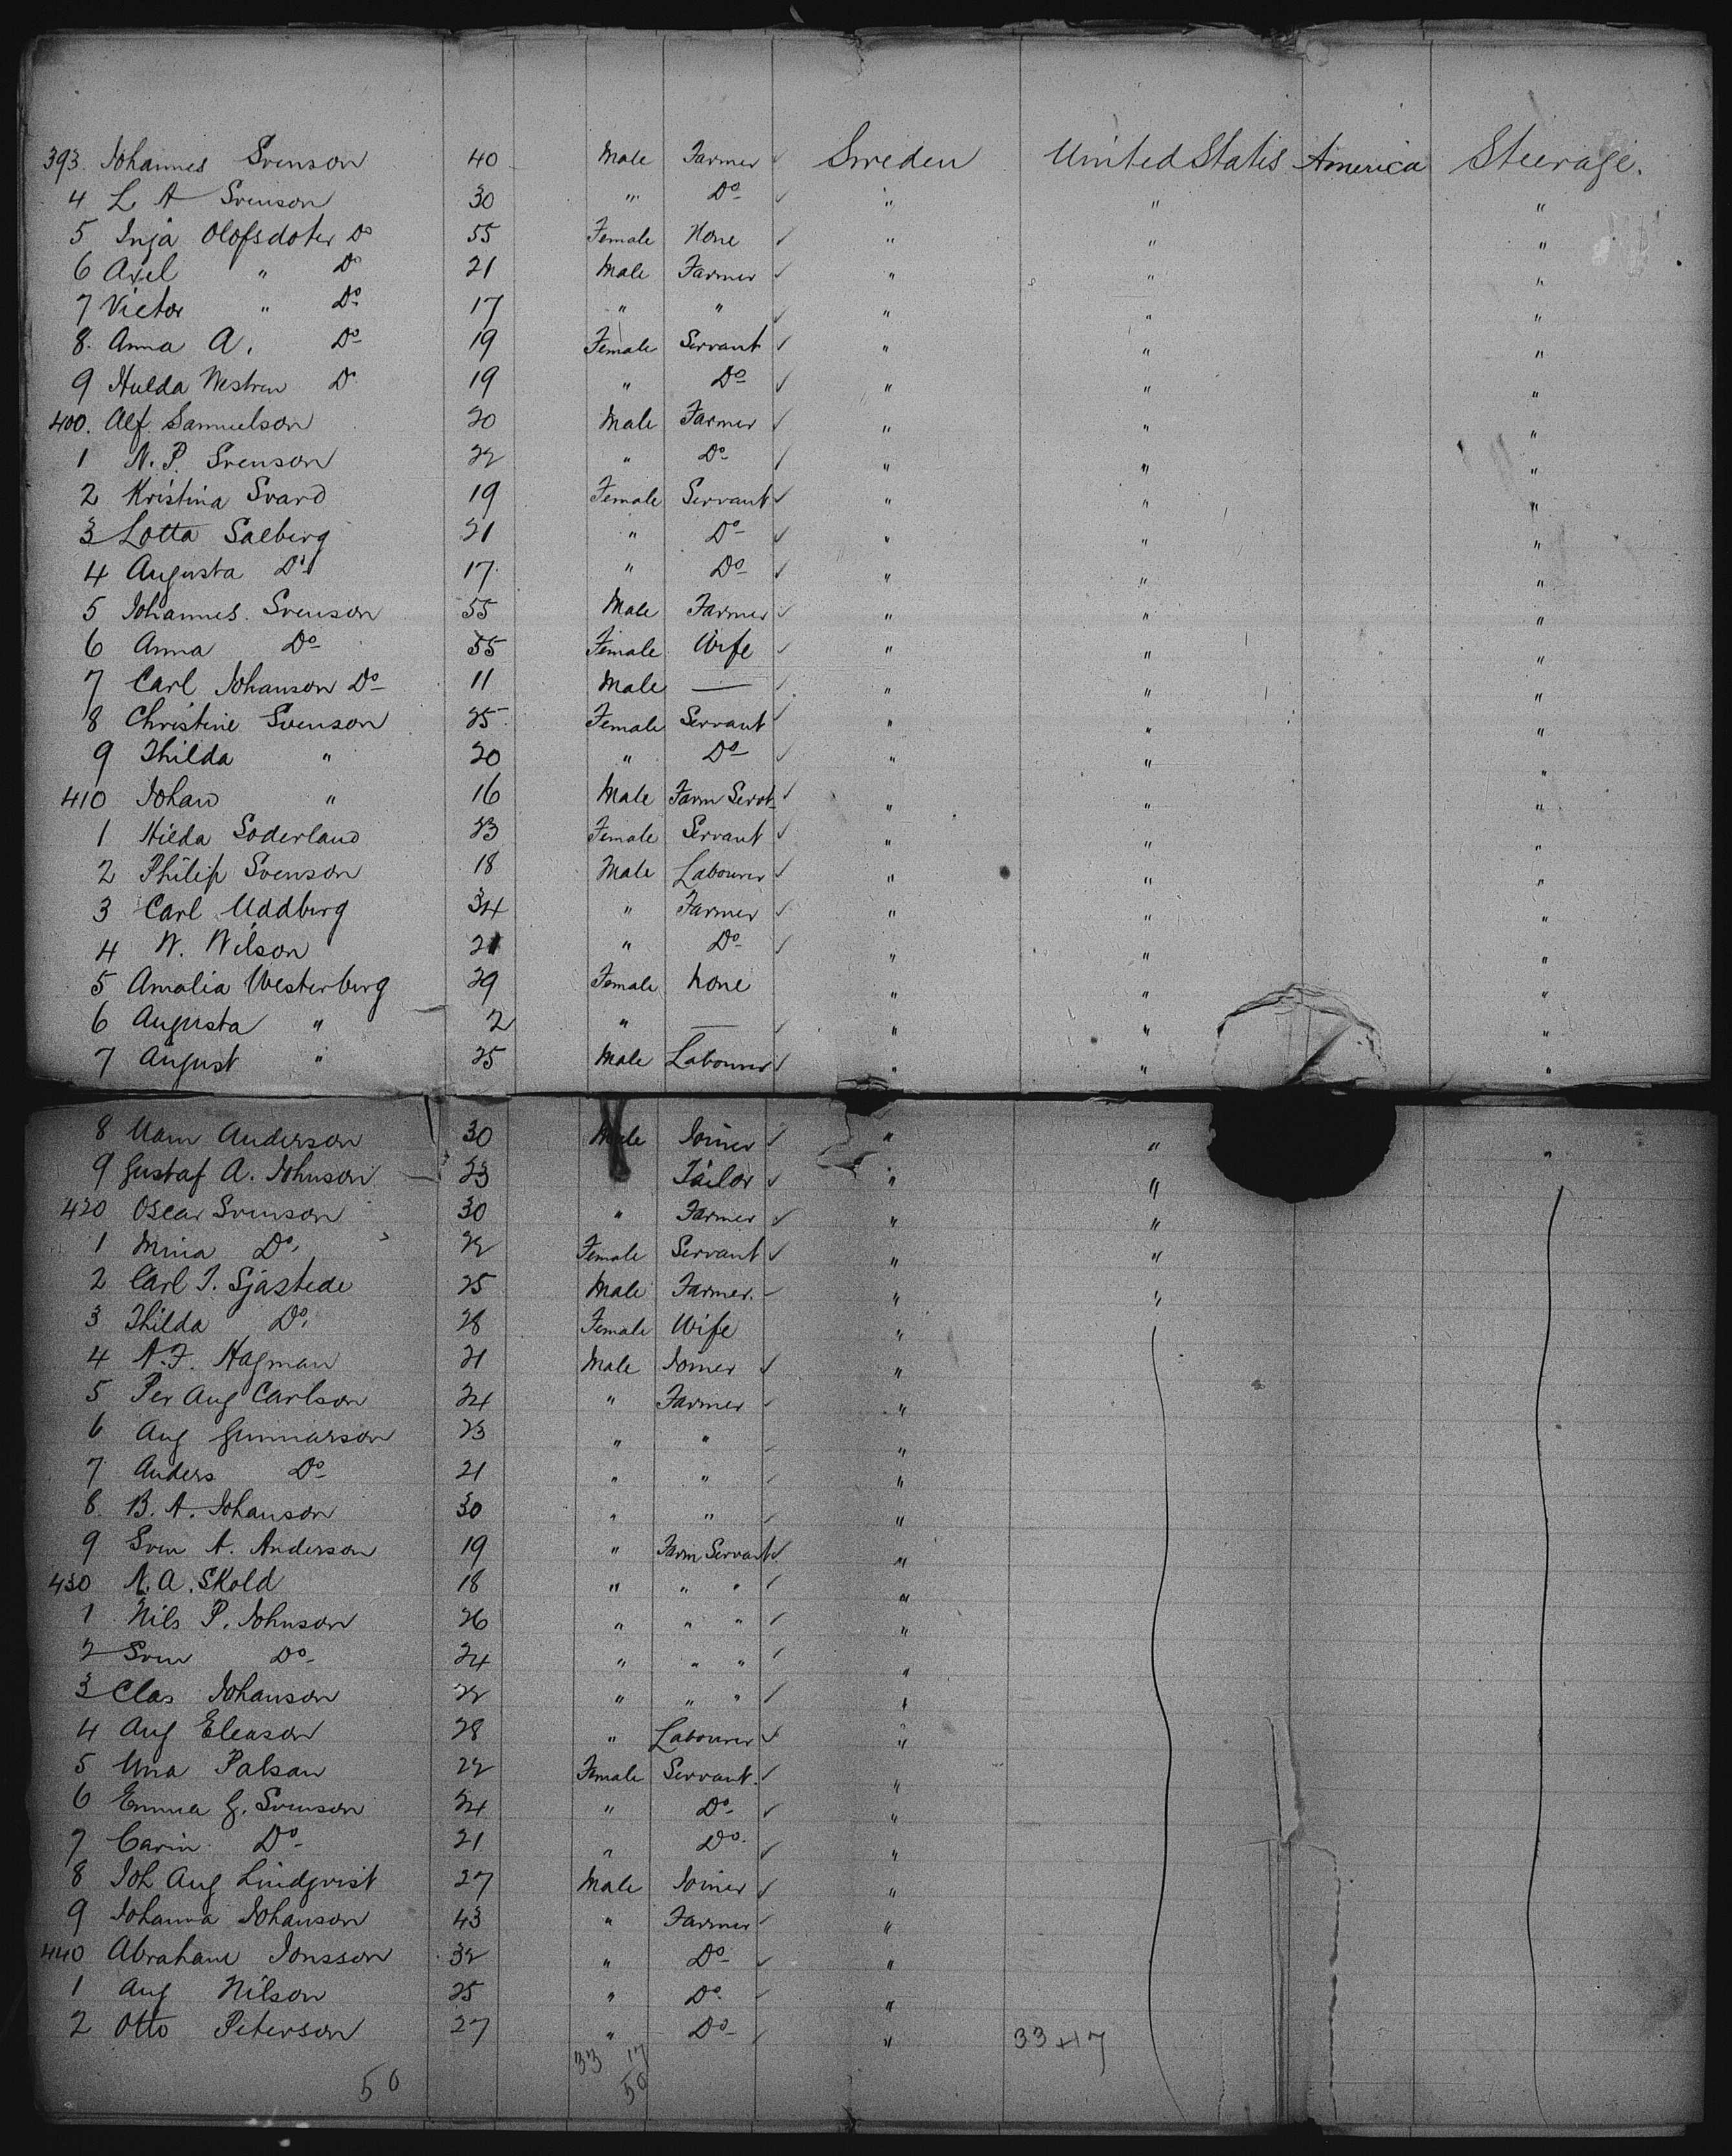 393. Johannes Svenson 40 Male Farmer ✓ Sweden United States America Steerage.
4 L A Svenson 30 " Do ✓ " " "
5 Inja Olofsdoter Do 55 Female None ✓ " " "
6 Axel " Do 21 Male Farmer ✓ " " "
7 Victor " Do 17 " " ✓ " " "
8. Anna A. Do 19 Female Servant ✓ " " "
9 Hulda Do 19 " Do ✓ " " "
400. Alf. Samuelson 20 Male Farmer ✓ " " "
1 N. P. Svenson 22 " Do ✓ " " "
2 Kristina Svard 19 Female Servant ✓ " " "
3 Lotta Salberg 21 " Do ✓ " " "
4 Augusta Do 17 " Do ✓ " " "
5 Johannes Svenson 55 Male Farmer ✓ " " "
6 Anna Do 55 Female Wife ✓ " " "
7 Carl Johanson Do 11 Male — ✓ " " "
8 Christine Svenson 25 Female Servant ✓ " " "
9 Thilda " 20 " Do ✓ " " "
410 Johan " 16 Male Farm Servt ✓ " " "
1 Hilda Soderland 23 Female Servant ✓ " " "
2 Philip Svenson 18 Male Labourer ✓ " " "
3 Carl Uddberg 34 " Farmer ✓ " " "
4 W. Wilson 21 " Do ✓ " " "
5 Amalia Westerberg 29 Female None " " "
6 Augusta " 2 " — ✓ " " "
7 August " 25 Male Labourer ✓ " " "
8 Anderson 30 Male Joiner ✓ " " "
9 Gustaf A. Johnson 23 Tailor ✓ " "
420 Oscar Svenson 30 " Farmer ✓ " "
1 Mina Do 22 Female Servant ✓ " "
2 Carl J. Sjastede 25 Male Farmer. ✓ " "
3 Thilda Do 28 Female Wife "
4 A. F. Hagman 21 Male Joiner ✓ "
5 Per Aug Carlson 24 " Farmer ✓ "
6 Aug Gunnarson 23 " " ✓ "
7 Anders Do 21 " " ✓ "
8. B. A. Johanson 30 " " ✓ "
9 Sven A. Anderson 19 " Farm Servant ✓ "
430 N. A. Skold 18 " " " ✓ "
1 Nils P. Johnson 26 " " " ✓ "
2 Sven Do 24 " " " ✓ "
3 Clas Johanson 22 " " " ✓ "
4 Aug Eleason 28 " Labourer ✓ "
5 Palsan 22 Female Servant. ✓ "
6 Emma G. Svenson 24 " Do ✓ "
7 Carin Do 21 " Do. ✓ "
8 Joh Aug Lindqvist 27 Male Joiner ✓ "
9 Johanna Johanson 43 " Farmer ✓ "
440 Abraham Jonsson 32 " Do ✓ "
1 Aug Nilson 25 " Do ✓ "
2 Otto Peterson 27 " Do ✓ " 33+17
33 17
50 50